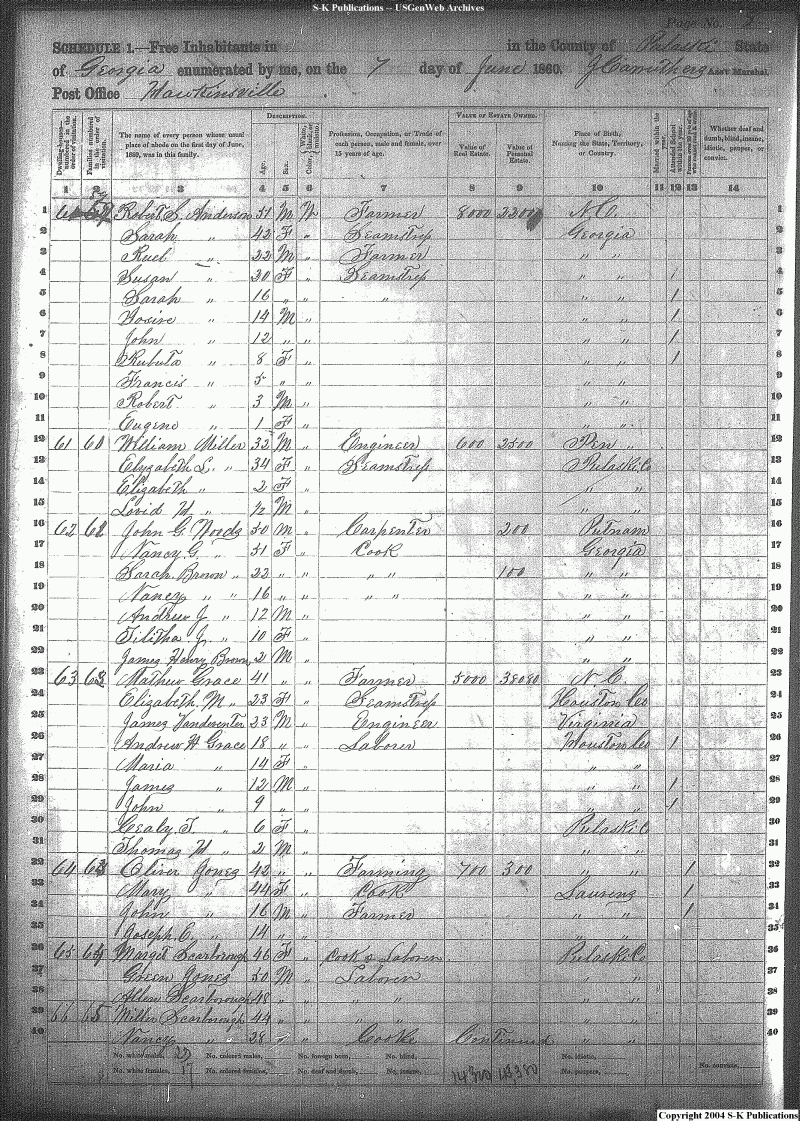 S-K Publications -- USGenWeb Archives
Page No. 2
SCHEDULE 1.—Free Inhabitants in in the County of Pulaski State
of Georgia enumerated by me, on the 7 day of June 1860. Ass't Marshal.
Post Office Hawkinsville
Dwelling-houses—numbered in the order of visitation. Families numbered in the order of visitation. The name of every person whose usual place of abode on the first day of June, 1860, was in this family. DESCRIPTION. Age. Sex. Color, White, black, or mulatto. Profession, Occupation, or Trade of each person, male and female, over 15 years of age. VALUE OF ESTATE OWNED. Value of Real Estate. Value of Personal Estate. Place of Birth, Naming the State, Territory, or Country. Married within the year. Attended School within the year. Whether deaf and dumb, blind, insane, idiotic, pauper, or convict.
1 2 3 4 5 6 7 8 9 10 11 12 13 14
1 Robert S. Anderson 51 M W Farmer 8000 N.C. 1
2 Sarah " 42 F " Seamstress Georgia 2
3 " 22 M " Farmer " " 3
4 Susan " 20 F " Seamstress " " / 4
5 Sarah " 16 " " " " " / 5
6 " 14 M " " " / 6
7 John " 12 " " " " / 7
8 " 8 F " " " / 8
9 Francis " 5 " " " " 9
10 Robert " 3 M " " " 10
11 Eugene " 1 F " " " 11
12 61 60 William Miller 32 M " Engineer 600 2500 Pen " 12
13 Elyzabeth L. " 34 F " Seamstress Pulaski Co 13
14 Elizabeth " 2 F " " " 14
15 " ½ M " " " 15
16 62 John G. Woods 50 M " Carpenter 200 Putnam 16
17 Nancy G " 51 F " Cook Georgia 17
18 Sarah Brown " 22 " " " " 100 " " 18
19 Nancy " " 16 " " " " " " 19
20 Andrew J " " 12 M " " " 20
21 Tilitha J. " 10 F " " " 21
22 James Henry Brown 2 M " " " 22
23 63 Mathew Grace 41 " " Farmer 5000 N.C. 23
24 Elizabeth M " 23 F " Seamstress Houston Co 24
25 James Vandeventer 23 M " Engineer Virginia 25
26 Andrew H Grace 18 " " Laborer Houston Co / 26
27 Maria " 14 F " " " 27
28 James " 12 M " " " / 28
29 John " 9 " " " " / 29
30 Cealy T " 6 F " Pulaski Co 30
31 Thomas H " 2 M " " " 31
32 64 Oliver Jones 42 " " Farming 700 300 " " / 32
33 Mary " 44 F " Cook Laurens / 33
34 John " 16 M " Farmer " " / 34
35 Joseph C. " 14 " " " " 35
36 65 64 Scarborough 46 F " Cook & Laborer Pulaski Co 36
37 Green Jones 50 M " Laborer " " 37
38 Allen Scarborough 48 " " " " " " 38
39 66 65 Scarborough 44 " " " " " " 39
40 Nancy " 28 " " Cooke Continued " " 40
No. white males, 23 No. colored males, No. foreign born, No. blind, No. idiotic,
No. white females, 17 No. colored females, No. deaf and dumb, No. insane, No. paupers, No. convicts,
Copyright 2004 S-K Publications